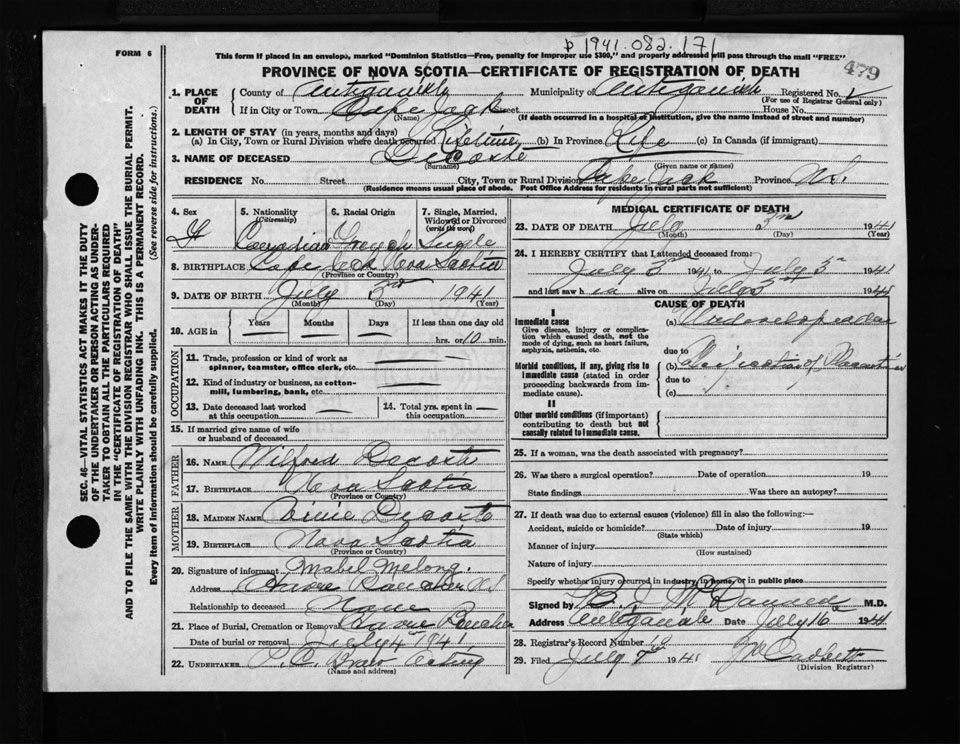 D 1941.082.171
FORM 6
This form if placed in an envelope, marked "Dominion Statistics—Free, penalty for improper use $300," and properly addressed will pass through the mail "FREE"
479
PROVINCE OF NOVA SCOTIA—CERTIFICATE OF REGISTRATION OF DEATH
1. PLACE OF DEATH
County of Antigonish Municipality of Antigonish Registered No.
(For use of Registrar General only)
If in City or Town Cape Jack Street House No.
(Name) (If death occurred in a hospital of institution, give the name instead of street and number)
2. LENGTH OF STAY (in years, months and days)
(a) In City, Town or Rural Division where death occurred Lifetime (b) In Province Life (c) In Canada (if immigrant)
3. NAME OF DECEASED Decoste
(Surname) (Given name or names)
RESIDENCE No. Street City, Town or Rural Division Cape Jack Province N.S.
(Residence means usual place of abode. Post Office Address for residents in rural parts not sufficient)
4. Sex 5. Nationality (Citizenship) 6. Racial Origin 7. Single, Married, Widowed or Divorced (write the word)
Canadian French Single
8. BIRTHPLACE Cape Jack Nova Scotia
(Province or Country)
9. DATE OF BIRTH July 3rd 1941
(Month) (Day) (Year)
10. AGE in Years Months Days If less than one day old
hrs. or 10 min.
OCCUPATION
11. Trade, profession or kind of work as spinner, teamster, office clerk, etc.
12. Kind of industry or business, as cotton-mill, lumbering, bank, etc.
13. Date deceased last worked at this occupation
14. Total yrs. spent in this occupation.
15. If married give name of wife or husband of deceased
FATHER
16. NAME Wilfred Decoste
17. BIRTHPLACE Nova Scotia
(Province or Country)
MOTHER
18. MAIDEN NAME Decoste
19. BIRTHPLACE Nova Scotia
(Province or Country)
20. Signature of informant Mabel Melong.
Address Havre Boucher N.S
Relationship to deceased None
21. Place of Burial, Cremation or Removal Havre Boucher
Date of burial or removal July 4th 1941
22. UNDERTAKER Acting
(Name and address)
MEDICAL CERTIFICATE OF DEATH
23. DATE OF DEATH July 3rd 1941
(Month) (Day) (Year)
24. I HEREBY CERTIFY that I attended deceased from:
July 3rd 1941 to July 3rd 1941
and last saw h alive on July 3rd 1941
CAUSE OF DEATH
I
Immediate cause
Give disease, injury or complication which caused death, not the mode of dying, such as heart failure, asphyxia, asthenia, etc.
(a)
due to
Morbid conditions, if any, giving rise to immediate cause (stated in order proceeding backwards from immediate cause).
(b) of
due to
(c)
II
Other morbid conditions (if important) contributing to death but not causally related to immediate cause.
25. If a woman, was the death associated with pregnancy?
26. Was there a surgical operation? Date of operation 19
State findings Was there an autopsy?
27. If death was due to external causes (violence) fill in also the following:—
Accident, suicide or homicide? Date of injury 19
(State which)
Manner of injury
(How sustained)
Nature of injury
Specify whether injury occurred in industry, in home, or in public place
Signed by M.D.
Address Antigonish Date July 16 1941
28. Registrar's Record Number
29. Filed July 7th 1941
(Division Registrar)
SEC. 46—VITAL STATISTICS ACT MAKES IT THE DUTY
OF THE UNDERTAKER OR PERSON ACTING AS UNDER-
TAKER TO OBTAIN ALL THE PARTICULARS REQUIRED
IN THE "CERTIFICATE OF REGISTRATION OF DEATH"
AND TO FILE THE SAME WITH THE DIVISION REGISTRAR WHO SHALL ISSUE THE BURIAL PERMIT.
WRITE PLAINLY WITH UNFADING INK. THIS IS A PERMANENT RECORD.
Every item of information should be carefully supplied. (See reverse side for instructions.)